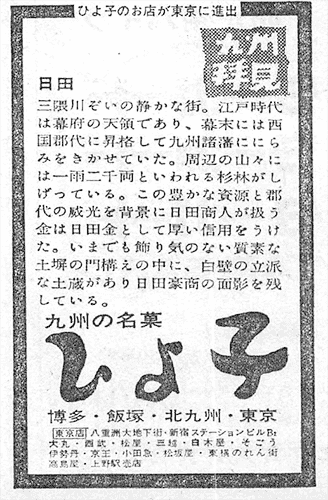 ひよ子のお店が東京に進出
九州
拝見
日田
三隈川ぞいの静かな街。江戸時代
は幕府の天領であり、幕末には西
国郡代に昇格して九州諸藩ににら
みをきかせていた。周辺の山々に
は一雨二千両といわれる杉林がし
げっている。この豊かな資源と郡
代の威光を背景に日田商人が扱う
金は日田金として厚い信用をうけ
た。いまでも飾り気のない質素な
土塀の門構えの中に、白壁の立派
な土蔵があり日田豪商の面影を残
している。
九州の名菓
ひよ子
博多・飯塚・北九州・東京
東京店 八重洲大地下街・新宿ステーションビルB1
大丸・西武・松屋・三越・白木屋・そごう
伊勢丹・京王・小田急・松坂屋・東横のれん街
高島屋・上野駅売店